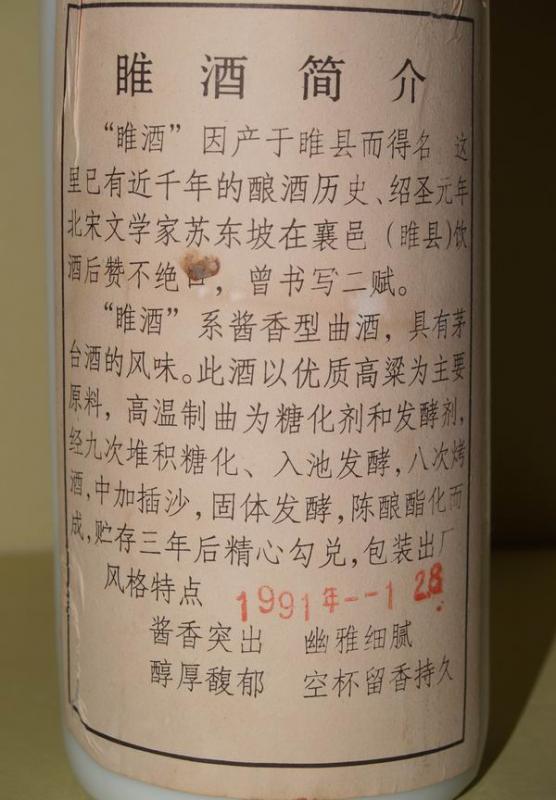 睢酒简介
“睢酒”因产于睢县而得名 这
里已有近千年的酿酒历史、绍圣元年
北宋文学家苏东坡在襄邑（睢县）饮
酒后赞不绝口，曾书写二赋。
“睢酒”系酱香型曲酒，具有茅
台酒的风味。此酒以优质高粱为主要
原料，高温制曲为糖化剂和发酵剂，
经九次堆积糖化、入池发酵，八次烤
酒，中加插沙，固体发酵，陈酿酯化而
成，贮存三年后精心勾兑，包装出厂
风格特点 1991年--1 28
酱香突出 幽雅细腻
醇厚馥郁 空杯留香持久